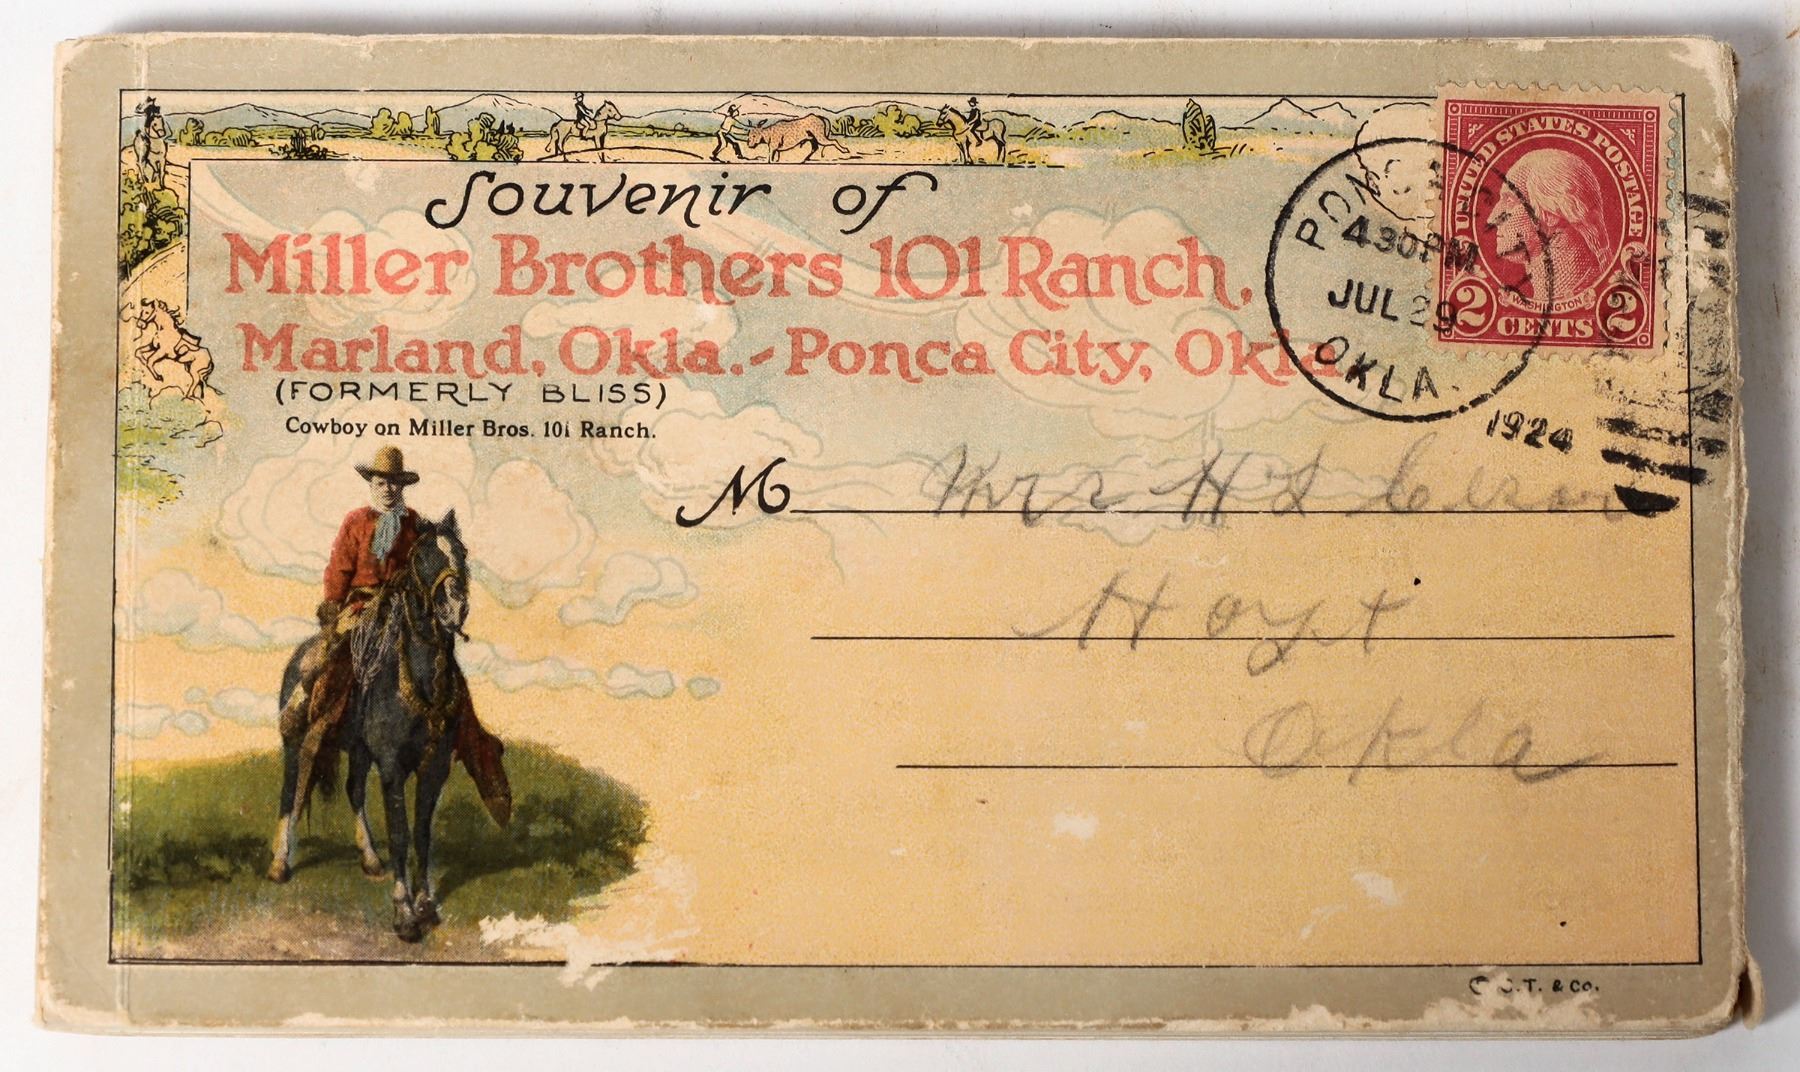 Souvenir of
Miller Brothers 101 Ranch,
Marland, Okla. - Ponca City, Okla.
(FORMERLY BLISS)
Cowboy on Miller Bros. 101 Ranch.
UNITED STATES POSTAGE
WASHINGTON
2 CENTS 2
PONCA CITY
430PM
JUL 29
OKLA.
1924
M Mrs H L
Hoyt
Okla
T. & CO.